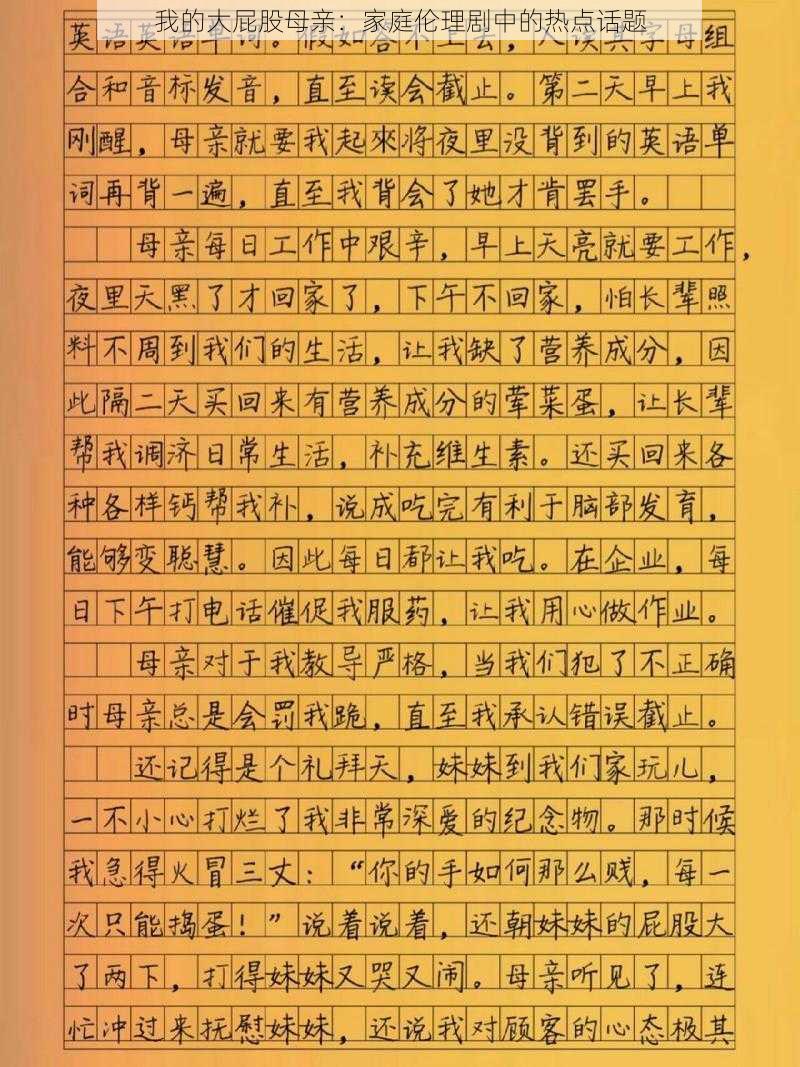 我的大屁股母亲：家庭伦理剧中的热点话题
英语英语单词。假如答不上去，人读其字母组
合和音标发音，直至读会截止。第二天早上我
刚醒，母亲就要我起來将夜里没背到的英语单
词再背一遍，直至我背会了她才肯罢手。
母亲每日工作中艰辛，早上天亮就要工作，
夜里天黑了才回家了，下午不回家，怕长辈照
料不周到我们的生活，让我缺了营养成分，因
此隔二天买回来有营养成分的荤菜蛋，让长辈
帮我调济日常生活，补充维生素。还买回来各
种各样钙帮我补，说成吃完有利于脑部发育，
能够变聪慧。因此每日都让我吃。在企业，每
日下午打电话催促我服药，让我用心做作业。
母亲对于我教导严格，当我们犯了不正确
时母亲总是会罚我跪，直至我承认错误截止。
还记得是个礼拜天，妹妹到我们家玩儿，
一不小心打烂了我非常深爱的纪念物。那时候
我急得火冒三丈：“你的手如何那么贱，每一
次只能捣蛋！”说着说着，还朝妹妹的屁股大
了两下，打得妹妹又哭又闹。母亲听见了，连
忙冲过来抚慰妹妹，还说我对顾客的心态极其